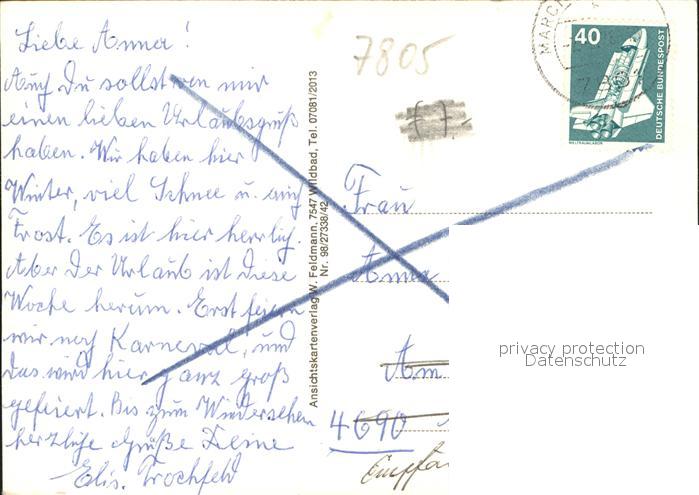 Liebe Anna!
Auch Du sollst von mir
einen lieben Urlaubsgruß
haben. Wir haben hier
Winter, viel Schnee u. auch
Frost. Es ist hier herrlich.
Aber der Urlaub ist diese
Woche herum. Erst feiern
wir noch Karneval, und
das wird hier ganz groß
gefeiert. Bis zum Wiedersehen
herzliche Grüße Deine
Elis. Trochfeld
7805
Ansichtskartenverlag W. Feldmann, 7547 Wildbad, Tel. 07081/2013
Nr. 98/27338/42
MARCH
40
DEUTSCHE BUNDESPOST
WELTRAUMLABOR
Frau
Anna
Am
4690
privacy protection
Datenschutz